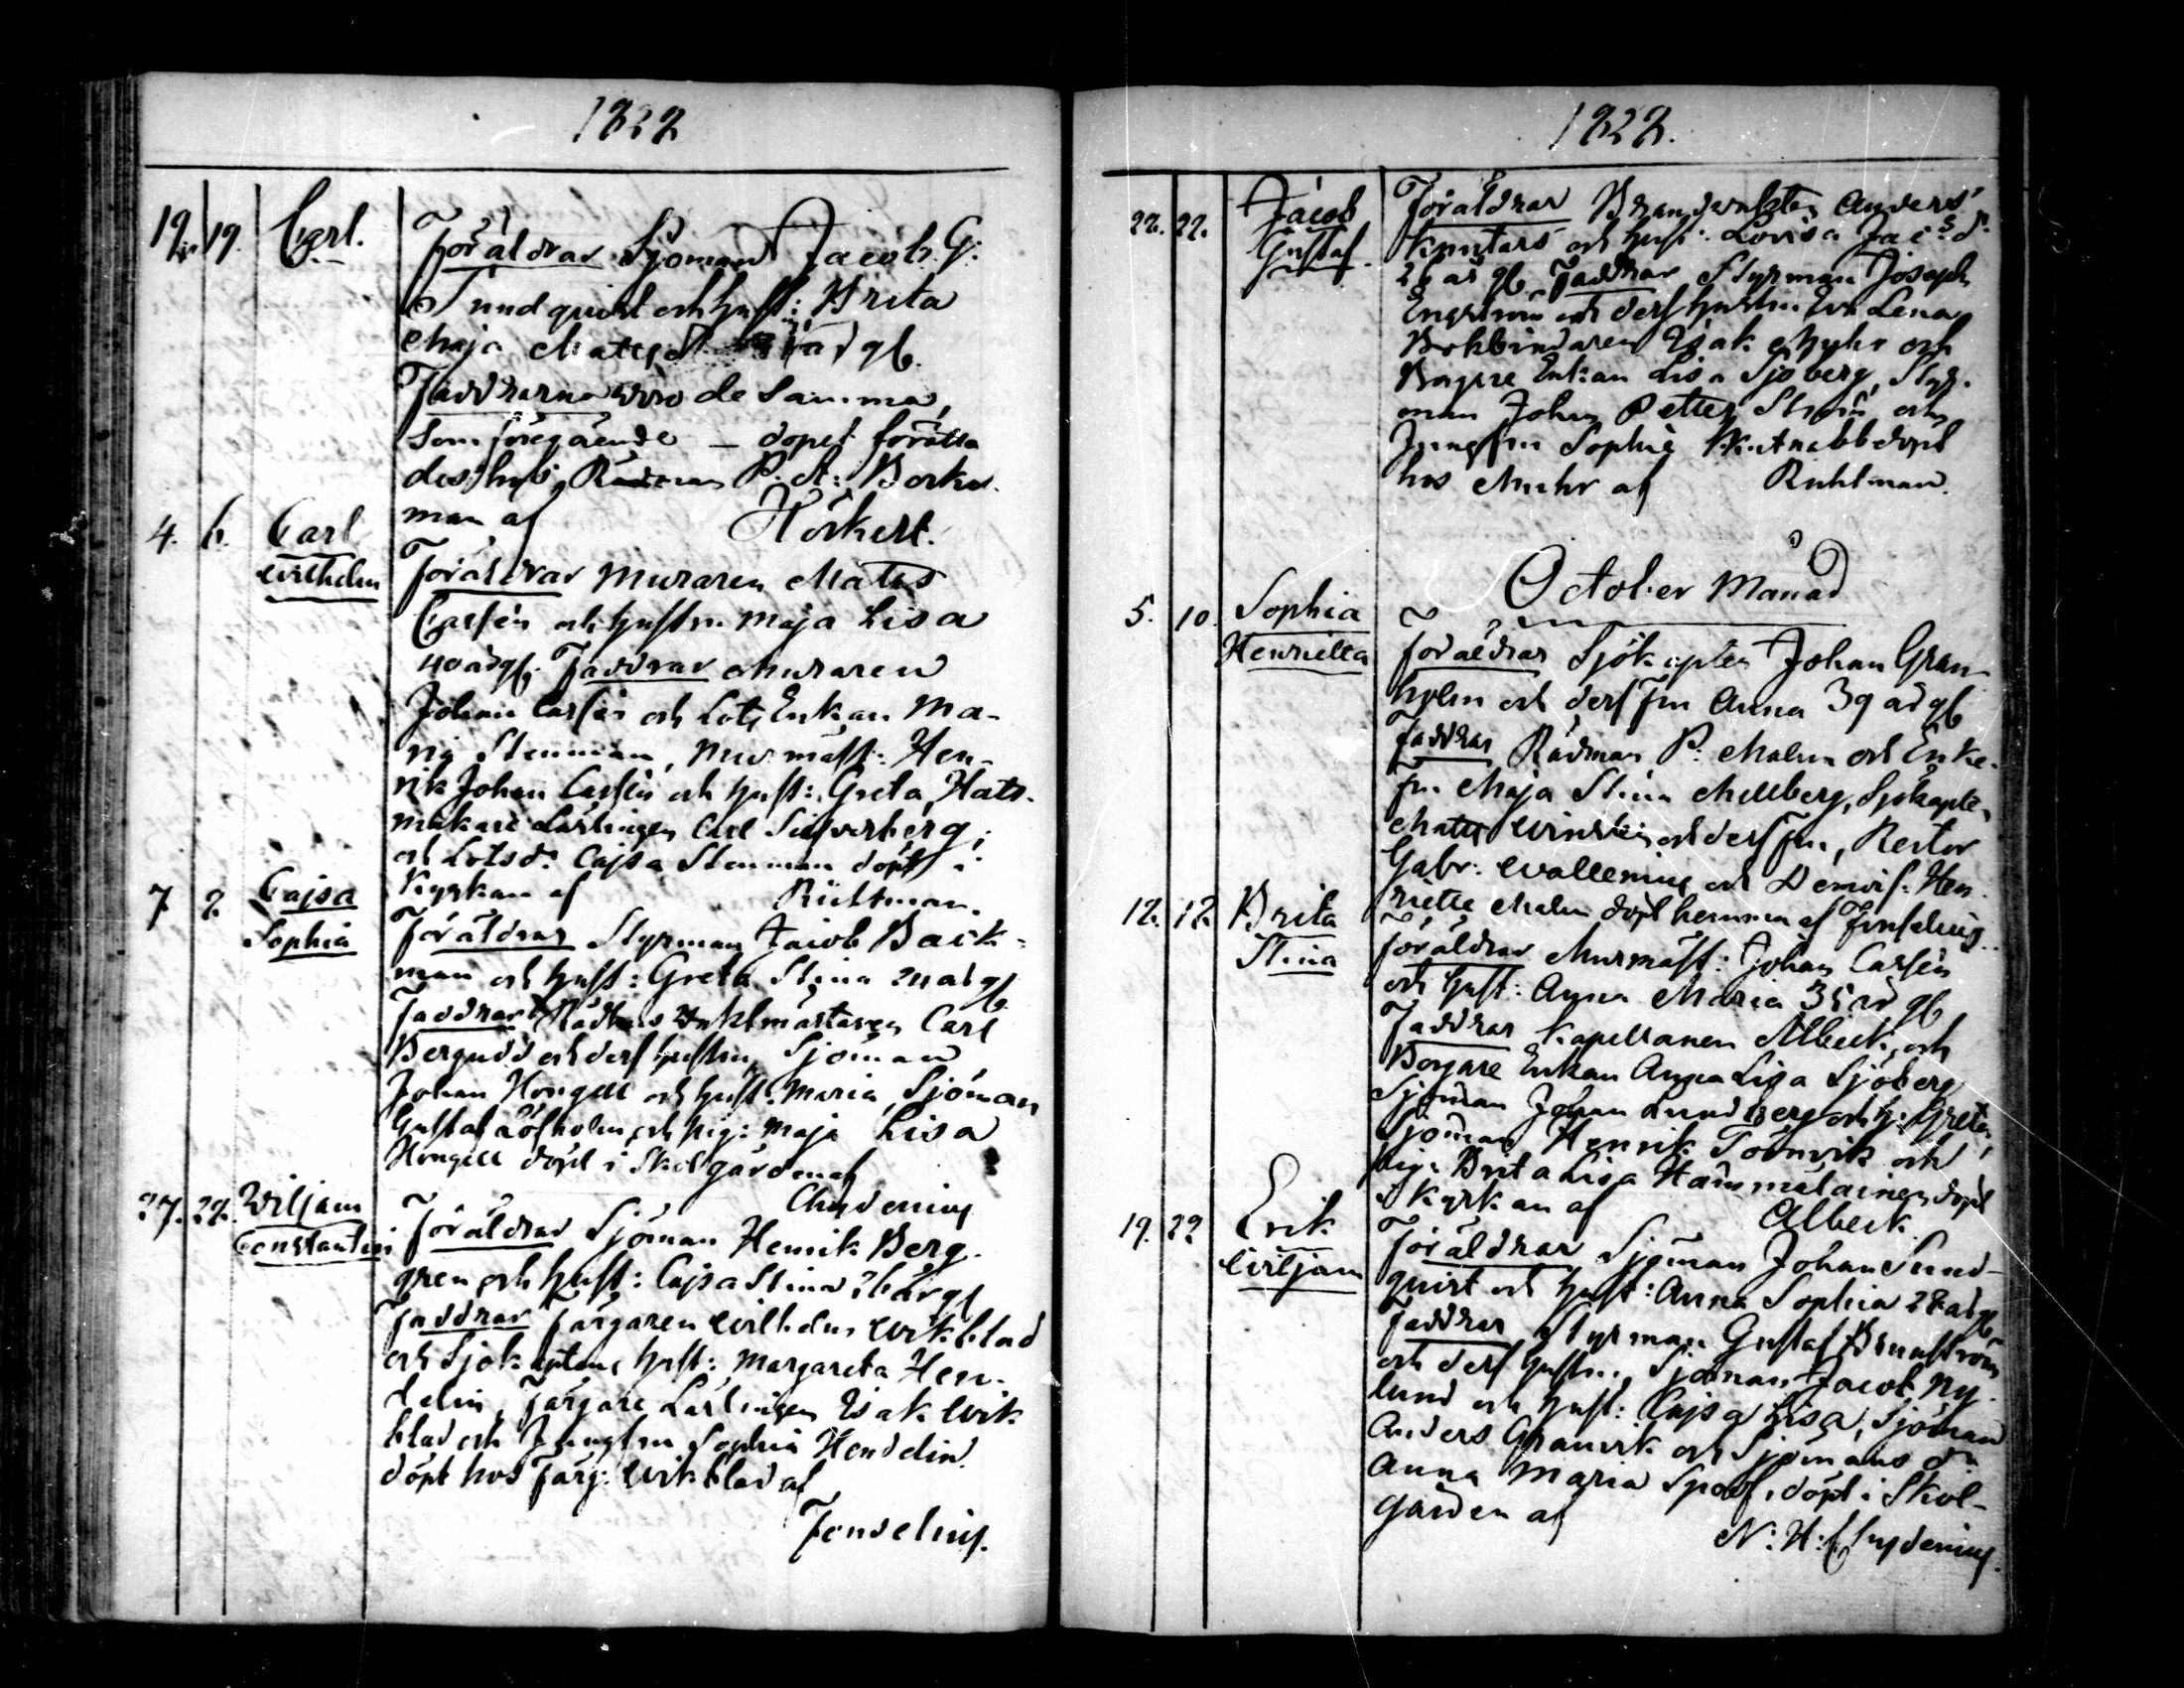 1828
19. 19. Carl. Föräldrar Sjöman Jacob G:
Sundquist och hust: Brita
Maja Matsd: år gl.
Faddrarna voro de samma,
som föregående – dopet förätta
des hos Rådman P. A: Bork
man af Hörkert.
4. 6. Carl Wilhelm
Föräldrar Muraren Matts
Carlén och hustru Maja Lisa
40 år gl. Faddrar Muraren
Johan Carlén och Lots Enkan Ma-
ria Stenman, Murmäst: Hen-
rik Johan Carlén och hust: Greta, Hatt-
makare Lärlingen Carl Silfverberg,
och Lotsd: Cajsa Stenman döpt i
Kyrkan af
7. 8. Cajsa Sophia
Föräldrar Styrman Jacob Back-
man och hust: Greta Stina 24 år gl
Faddrar Rådhus Vaktmästaren Carl
Bergudd och dess hustru, Sjöman
Johan Hongell och hust. Maria, Sjöman
Gustaf Löfholm och pig: Maja Lisa
Hongell döpt i Skolgården af
Chydenius
27. 28. Wiljam Constantin
Föräldrar Sjöman Henrik Berg-
gren och hust: Cajsa Stina år gl
Faddrar färgaren Wilhelm Wikblad
och Sjökaptens hust: Margareta Hen-
delin, Färgare Lärlingen Isak Wik
blad och Jungfru Sophia Hendelin.
döpt hos Färg: Wikblad af
Fonselius.
1828.
22. 22. Jacob Gustaf.
Föräldrar Brandvakten Anders
och hust: Lovisa Jacsdr
26 år gl. Faddrar Styrman Joseph
Engström och dess hustru Eva Lena
Bokbindaren Isak Myhr och
Borgare Enkan Lisa Sjöberg, Styr-
man Johan Petter Ström och
Jungfru Sophie döpt
hos Muhr af
October Månad
5. 10. Sophia Henrietta
Föräldrar Sjökapten Johan Gran-
holm och dess Fru Anna 39 år gl
Faddrar Rådman P. Malm och Enke-
fru Maja Stina Mellberg, Sjökapten
Matts och dess fru, Rector
Gabr: Wallenius och Demois: Hen-
riette Malm döpt hemma af Fonselius.
12. 12. Brita Stina
Föräldrar Murmäst: Johan Carlén
och hust: Anna Maria 35 år gl
Faddrar Kapellanen Albeck, och
Borgare Enkan Anna Lisa Sjöberg
Sjöman Johan Lundberg och h: Greta,
Sjöman Henrik Törnvik och
pig: Brita Lisa Hämäläinen döpt
i Kyrkan af Albeck.
19. 22 Erik Wiljam
Föräldrar Sjöman Johan Sund-
quist och hust: Anna Sophia 28 år gl
Faddrar Styrman Gustaf Brunström
och dess hustru, Sjöman Jacob Ny-
lund och hust: Cajsa Lisa, Sjöman
Anders Granvik och Sjömans dr
Anna Maria Spoof, döpt i Skol-
gården af
N: H: Chydenius.